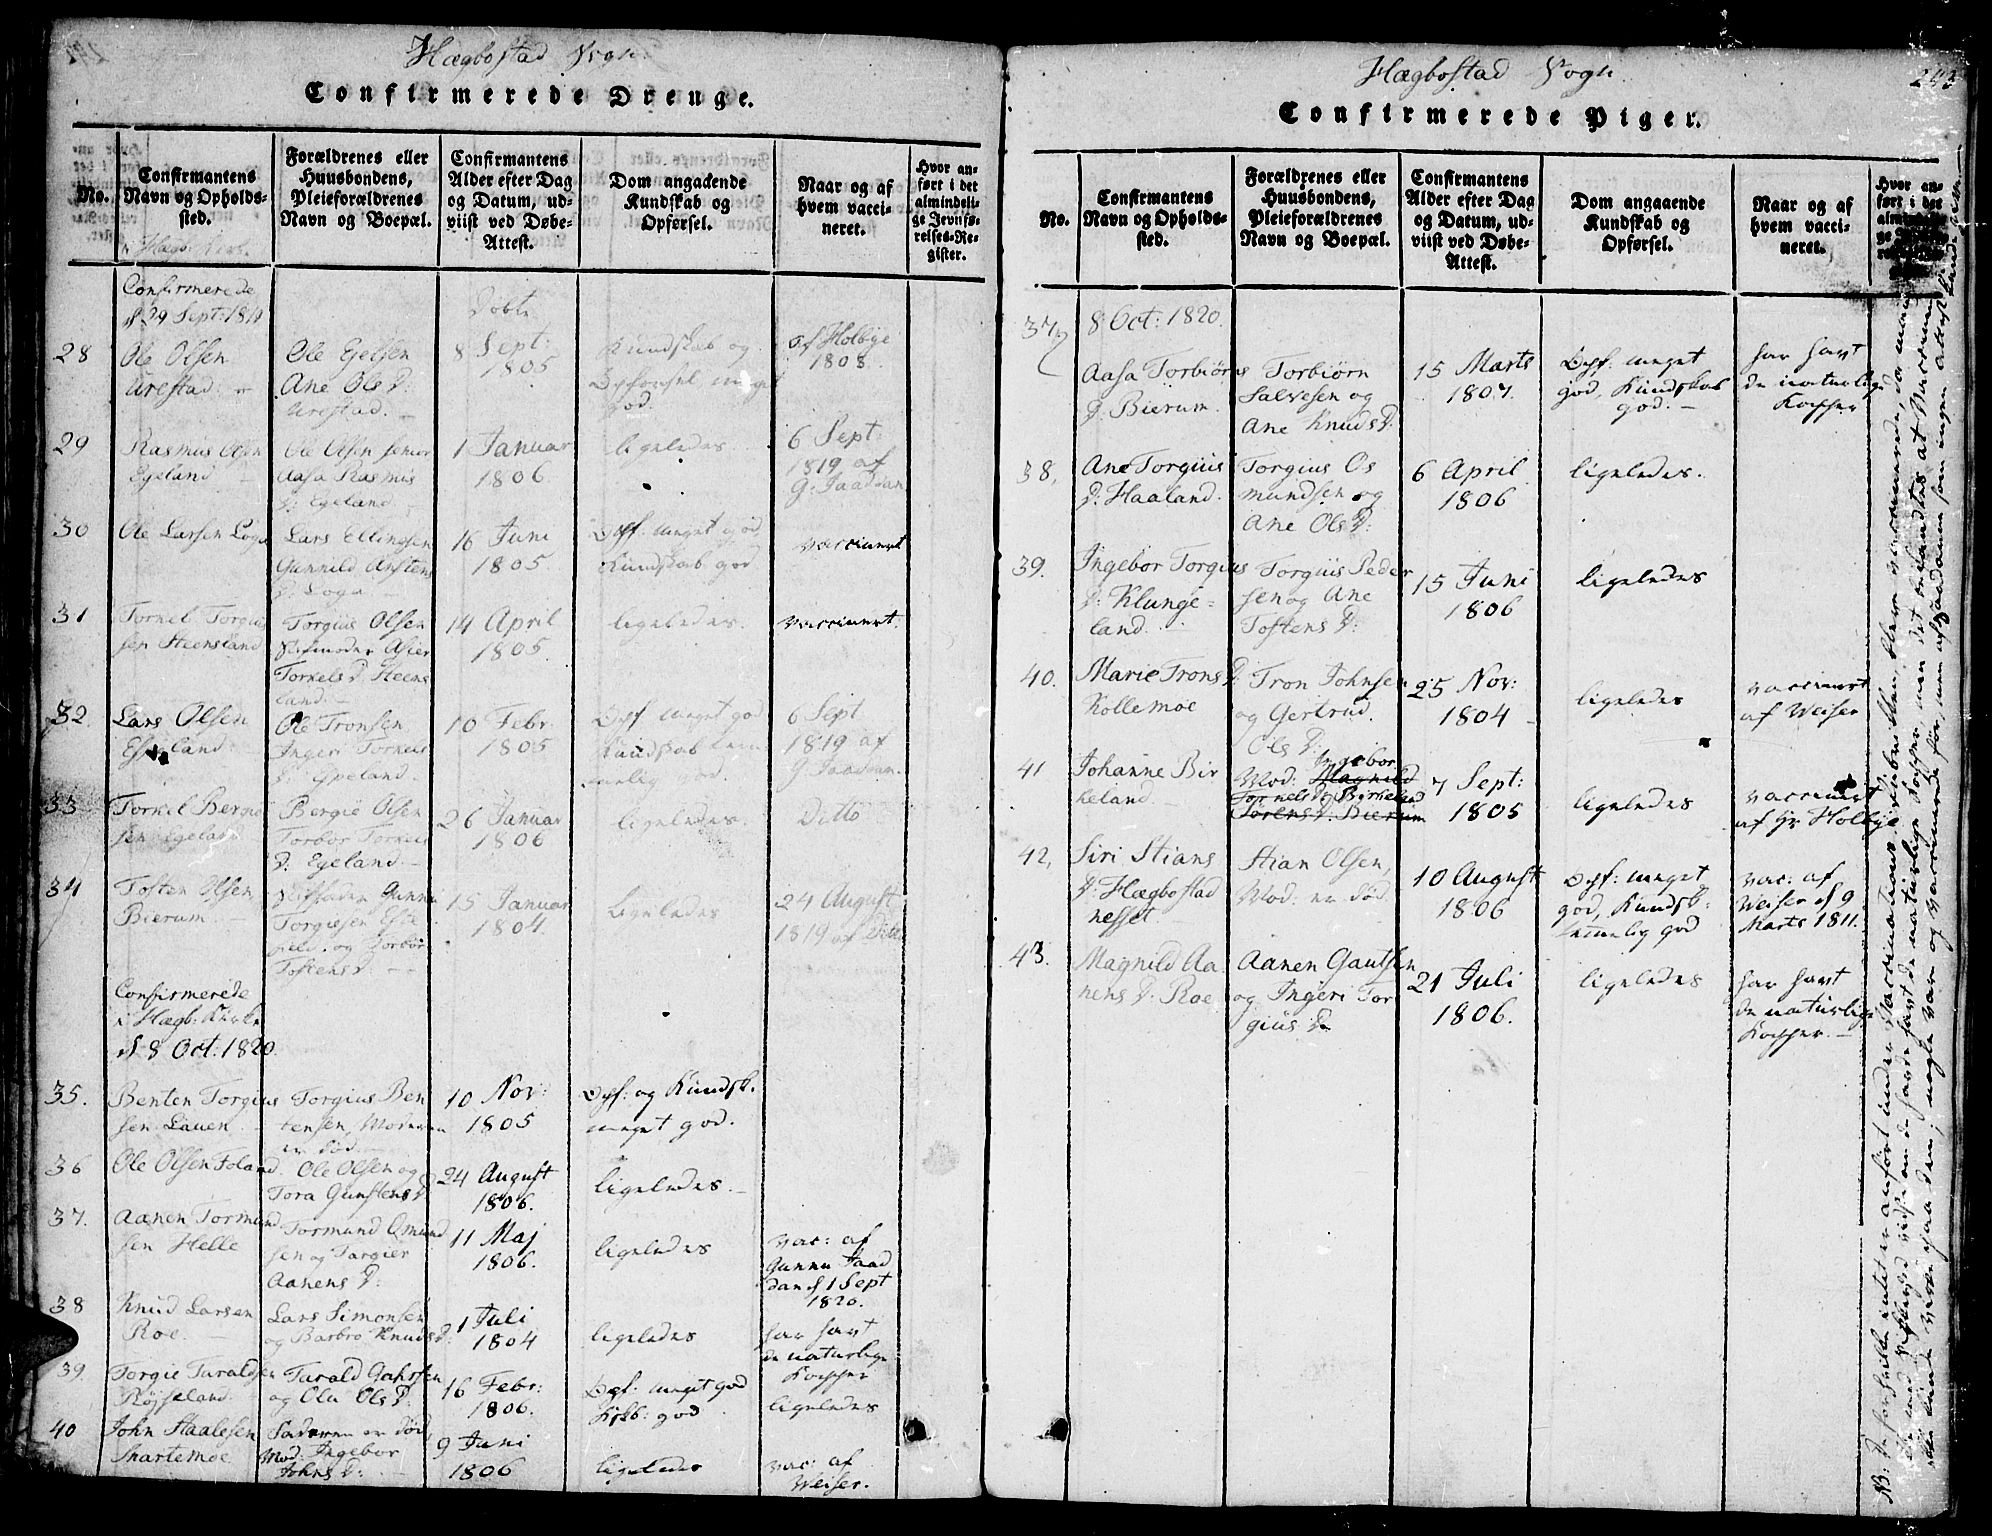 Hægbostad Sogn.
Confirmerede Drenge.
No.
Confirmantens
Navn og Opholds-
sted.
Forældrenes eller
Huusbondens,
Pleieforældrenes
Navn og Boepæl.
Confirmantens
Alder efter Dag
og Datum, ud-
viist ved Døbe-
Attest.
Dom angaaende
Kundskab og
Opførsel.
Naar og af
hvem vacci-
neret.
Hvor an-
ført i det
almindeli-
ge Jevnfø-
relses-Re-
gister.
Confirmerede
d 29 Sept: 1819
Døbte
28
Ole Olsen
Urestad.
Ole Eielsen
Ane Ols D.
Urestad.
8 Sept:
1805
Kundskab og
Opførsel meget
god.
af Holbye
1808.
29
Rasmus Olsen
Egeland
Ole Olsen senior
Aasa Rasmus
D: Egeland
1 Januar
1806
ligeledes
6 Sept:
1819 af
G. Jaaddan
30
Ole Larsen Loga
Lars Ellingsen
Gunnild
D. Loga
16 Juni
1805.
Opf. meget god
Kundskab god
vaccineret
31
Tornel Torgius
sen Steensland
Torgius Olsen
Stifmoder Asier
Torkels D. Steens
land.
14 April
1805.
ligeledes.
vaccineret.
32.
Lars Olsen
Espeland
Ole Tronsen
Ingeri Torkels
D. Espeland
10 Febr.
1805
Opf. meget god
Kundskab tem
melig god.
6 Sept
1819 af
G Jaaddan.
33
Torkel Bergie
sen Egeland
Bergie Olsen
Torbor Torkels
D: Egeland
26 Januar
1806
ligeledes.
Ditto
34
Tosten Olsen,
Bierum
Stiffader Gunnu
Torgiesen
og Torbor
Tostens D.
15 Januar
1804.
Ligeledes
24 August
1819 af Ditto
Confirmerede
i Hægb: Kirke
d 8 Oct: 1820.
35.
Benten Torgius
sen Lauen
Torgius Ben
tensen, Moderen
er død.
10 Nov:
1805
Opf: og Kundsk.
meget god.
36
Ole Olsen Foland
Ole Olsen og
Tora Gunstens D
24 August
1806.
ligeledes.
37.
Aanen Tormund
sen Helle
Tormund Omund
sen og Targier
Aanens D:
11 Maj
1806.
ligeledes
vac: af
Gunnu Jaad
dan d 1 Sept
1820.
38
Knud Larsen
Roe.
Lars Simonsen
og Barbro Knuds D.
21 Juli
1804
ligeledes
har havt
de naturlige
Kopper
39.
Torgie Taraldsen
Røjseland.
Tarald
og Ola Ols D.
16 Febr:
1806.
Opf: meget god
Kskb: god
ligeledes
40
John Staalesen
Snartemoe
Faderen er død,
Mod: Ingebor
Johns D:
9 Juni
1806
ligeledes
vac: af
Weiser.
Hægbostad Sogn.
243
Confirmerede Piger.
No.
Confirmantens
Navn og Opholds-
sted.
Forældrenes eller
Huusbondens,
Pleieforældrenes
Navn og Boepæl.
Confirmantens
Alder efter Dag
og Datum, ud-
viist ved Døbe-
Attest.
Dom angaaende
Kundskab og
Opførsel.
Naar og af
hvem vacci-
neret.
Hvor an-
ført i det
8 Oct: 1820.
37.
Aasa Torbiørns
D. Bierum.
Torbiørn
Salvesen og
Ane Knuds D.
15 Marts
1807.
Opf: meget
god, Kundskab
god.
har havt
de naturlige
Kopper
38,
Ane Torgius
D. Haaland.
Torgius Os
mundsen og
Ane Ols D:
6 April
1806
ligeledes.
39.
Ingebor Torgius
D: Klunge=
land.
Torgius Peder
sen og Ane
Tostens D:
15 Juni
1806
ligeledes
40.
Marie Trons D.
Kollemoe
Tron Johnsen
og Gertrud.
Ols D.
25 Nov:
1804
ligeledes
vaccineret
af Weiser
41
Johanne Bir
keland
Ingebor
Mod: Magnild
Tornels D. Birkeland
Torens D. Bierum
7 Sept:
1805
ligeledes
vaccineret
af Hr Holbye
42,
Siri Stians
D: Hægbostad
nesset
Stian Olsen,
Mod: er død
10 August
1806
Opf: meget
god, Kundsk:
temelig god
vac: af
Weiser d 9
Marts 1811.
43.
Magnild Aa
nens D: Roe
Aanen Gautsen
og Ingeri Tor
gius D
21 Juli
1806.
ligeledes
har havt
de naturlige
Kopper.
NB: De for hvilke intet er anført under Vaccinations Rubriken, bleve